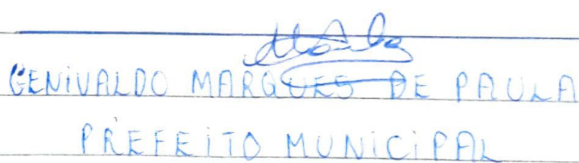 GENIVALDO MARQUES DE PAULA
PREFEITO MUNICIPAL